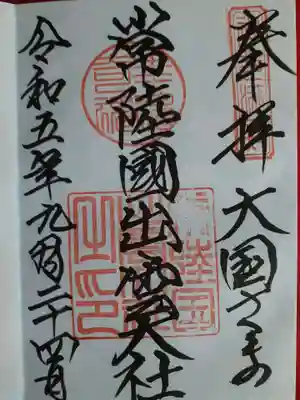 奉拝 大国さま
常陸國出雲大社
令和五年九月二十四日